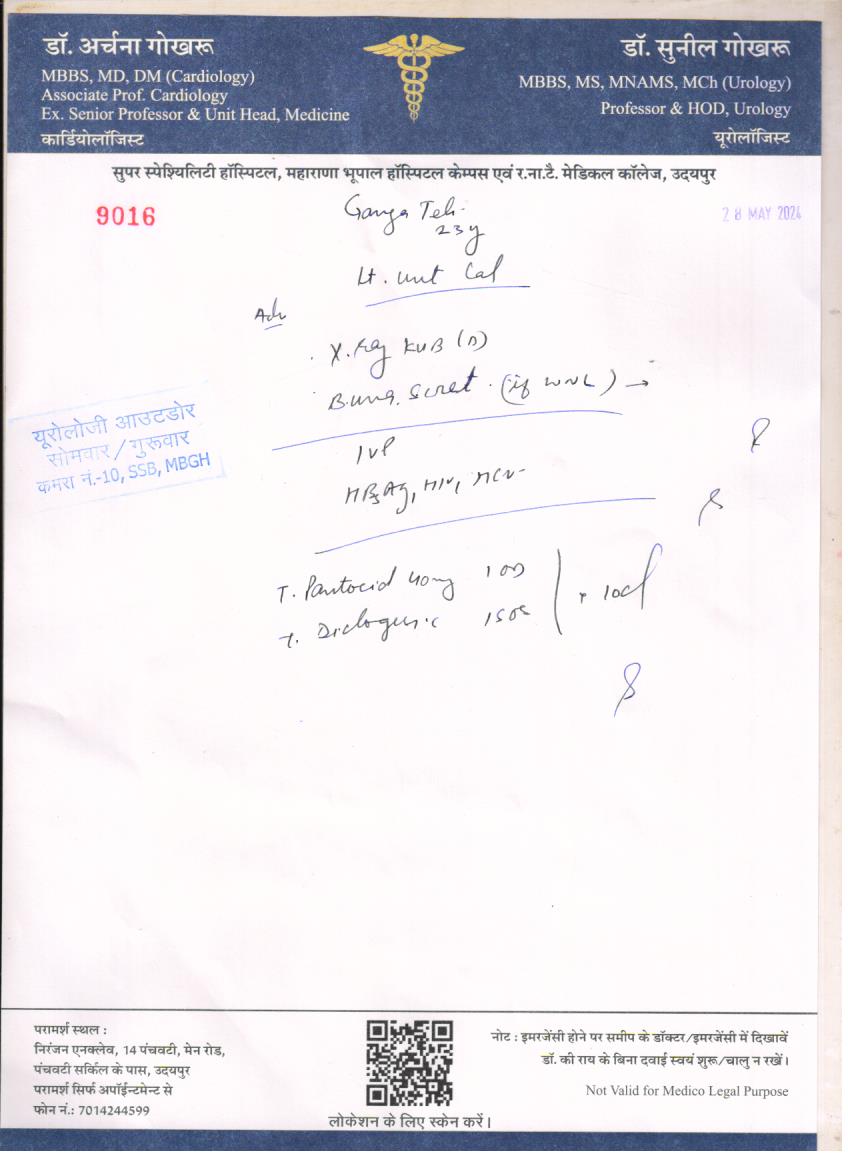 डॉ. अर्चना गोखरू
MBBS, MD, DM (Cardiology)
Associate Prof. Cardiology
Ex. Senior Professor & Unit Head, Medicine
कार्डियोलॉजिस्ट
डॉ. सुनील गोखरू
MBBS, MS, MNAMS, MCh (Urology)
Professor & HOD, Urology
यूरोलॉजिस्ट
सुपर स्पेश्यिलिटी हॉस्पिटल, महाराणा भूपाल हॉस्पिटल केम्पस एवं र.ना.टै. मेडिकल कॉलेज, उदयपुर
9016
28 MAY 2024
Ganga Teli
23y
Lt. Cal
Adv
X.Ray KUB (D)
B.urea. S.creat. (if WNL) →
IVP
HBsAg, HIV, HCV
यूरोलॉजी आउटडोर
सोमवार/गुरूवार
कमरा नं.-10, SSB, MBGH
T. Pantocid 40mg 1 OD
T. 1 SOS
x 10d
परामर्श स्थल :
निरंजन एनक्लेव, 14 पंचवटी, मेन रोड,
पंचवटी सर्किल के पास, उदयपुर
परामर्श सिर्फ अपॉईन्टमेन्ट से
फोन नं.: 7014244599
लोकेशन के लिए स्केन करें।
नोट : इमरजेंसी होने पर समीप के डॉक्टर/इमरजेंसी में दिखावें
डॉ. की राय के बिना दवाई स्वयं शुरू/चालु न रखें।
Not Valid for Medico Legal Purpose